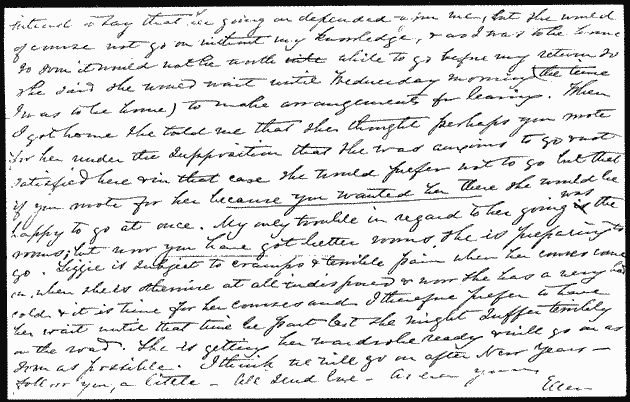 intend to say that her going on depended upon me, but she would
of course not go on without my knowledge, & as I was to be home
so soon it would not be worth while to go before my return so
she said she would wait until Wednesday morning (the time
I was to be home) to make arrangements for leaving. When
I got home she told me that she thought perhaps you wrote
for her under the supposition that she was anxious to go & not
satisfied here & in that case she would prefer not to go but that
if you wrote for her because you wanted her there she would be
happy to go at once. My only trouble in regard to her going was the
rooms; but now you have got better rooms, she is preparing to
go. Lizzie is subject to cramps & terrible pain when her courses come
on, when she is otherwise at all indisposed & now she has a very bad
cold & it is time for her courses and I therefore prefer to have
her wait until that time be past lest she might suffer terribly
on the road. She is getting her wardrobe ready & will go on as
soon as possible. I think we will go on after New Years—
you, a little — All send love — As ever yours
Ellen